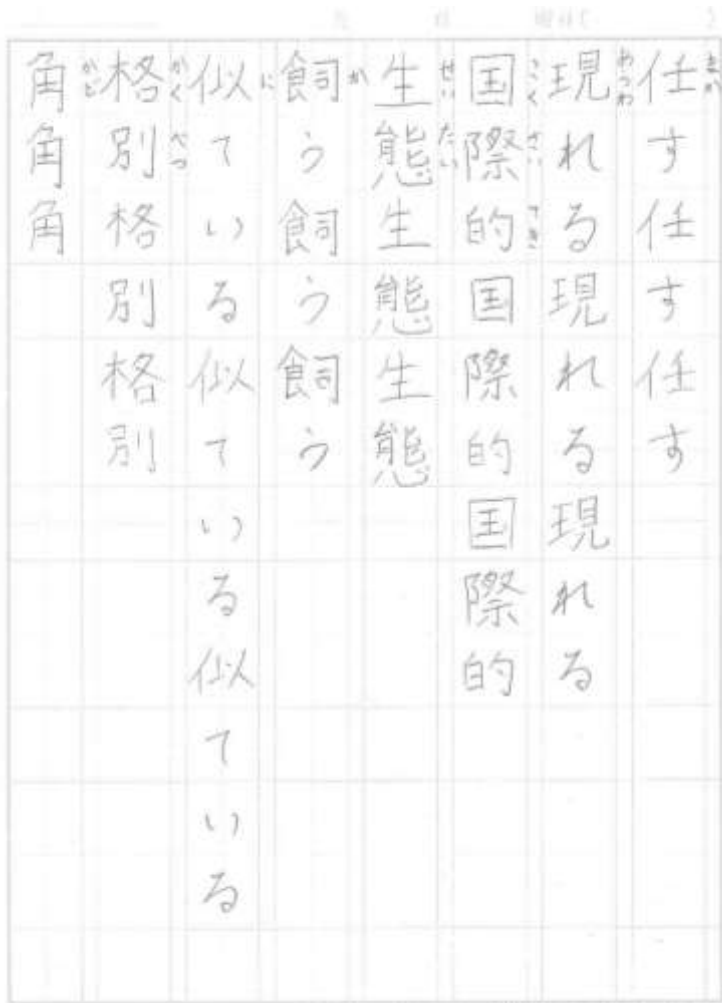 任す任す任す
まか
現れる現れる現れる
あらわ
国際的国際的国際的
こくさいてき
生態生態生態
せいたい
飼う飼う飼う
か
似ている似ている似ている
に
格別格別格別
かくべつ
角角角
かど